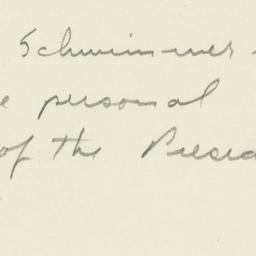 Schwimmer
e personal
of the Presid